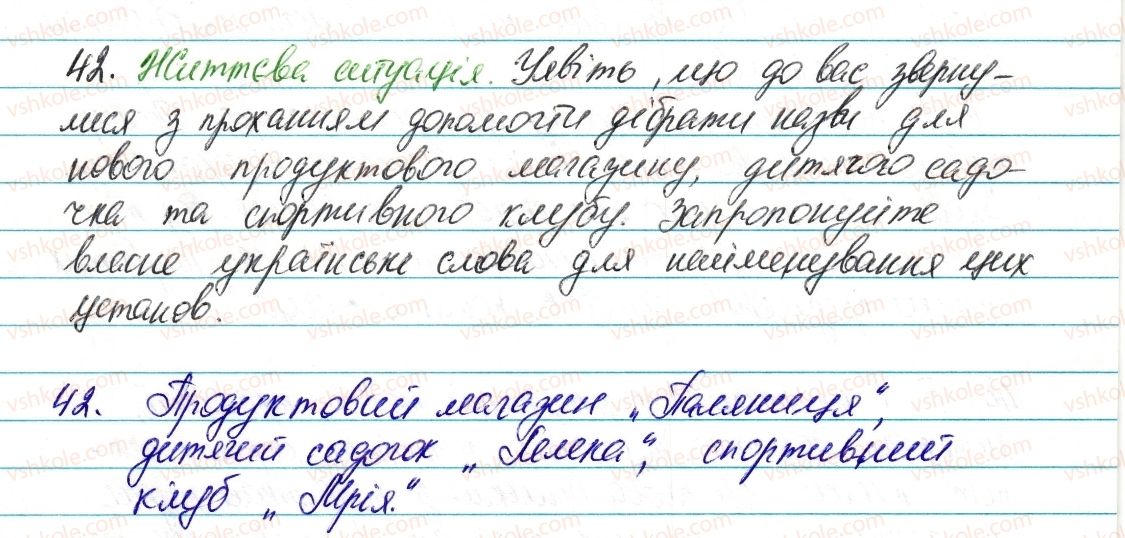 42. Життєва ситуація. Уявіть, що до вас зверну-
лися з проханням допомогти дібрати назви для
нового продуктового магазину, дитячого садо-
чка та спортивного клубу. Запропонуйте
власне українські слова для найменування цих
установ.
42. Продуктовий магазин „Паляниця“,
дитячий садочок „Лелека“, спортивний
клуб „Мрія.“